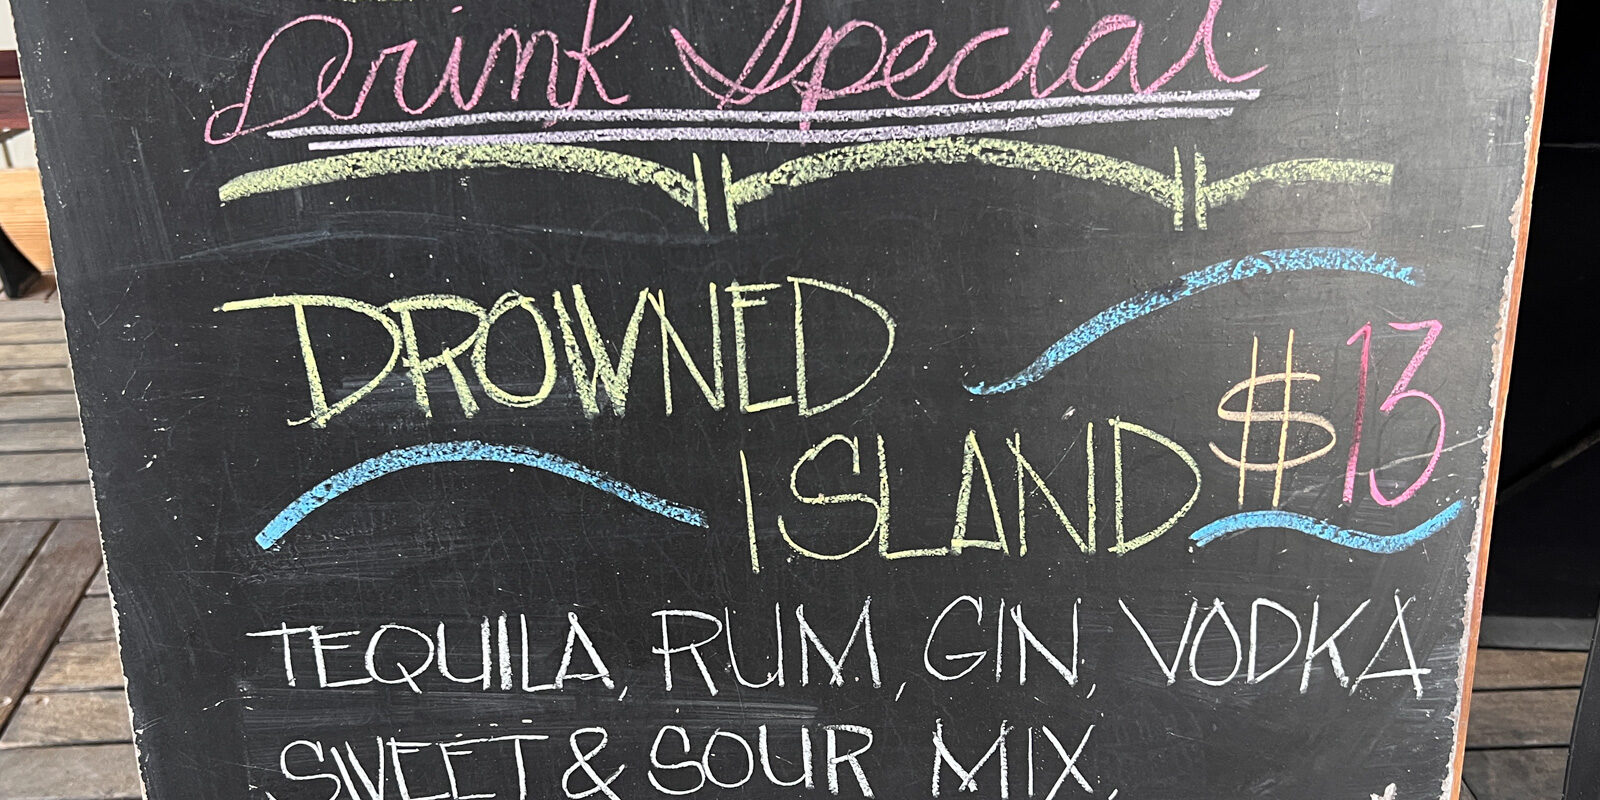 Drink Special
DROWNED
ISLAND $13
TEQUILA, RUM, GIN, VODKA
SWEET & SOUR MIX,